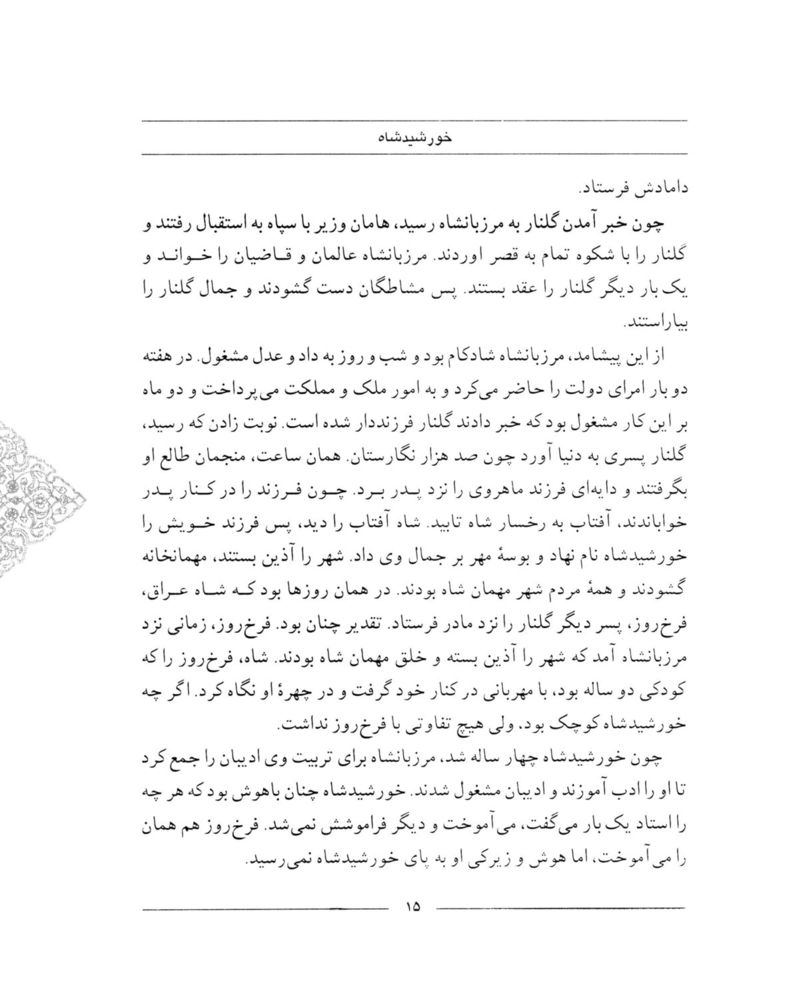 خورشیدشاه
دامادش فرستاد.
چون خبر آمدن گلنار به مرزبانشاه رسید، هامان وزیر با سپاه به استقبال رفتند و
گلنار را با شکوه تمام به قصر اوردند. مرزبانشاه عالمان و قاضیان را خواند و
یک بار دیگر گلنار را عقد بستند. پس مشاطگان دست گشودند و جمال گلنار را
بیاراستند.
از این پیشامد، مرزبانشاه شادکام بود و شب و روز به داد و عدل مشغول. در هفته
دو بار امرای دولت را حاضر می‌کرد و به امور ملک و مملکت می‌پرداخت و دو ماه
بر این کار مشغول بود که خبر دادند گلنار فرزنددار شده است. نوبت زادن که رسید،
گلنار پسری به دنیا آورد چون صد هزار نگارستان. همان ساعت، منجمان طالع او
بگرفتند و دایه‌ای فرزند ماهروی را نزد پدر برد. چون فرزند را در کنار پدر
خواباندند، آفتاب به رخسار شاه تابید. شاه آفتاب را دید، پس فرزند خویش را
خورشیدشاه نام نهاد و بوسهٔ مهر بر جمال وی داد. شهر را آذین بستند، مهمانخانه
گشودند و همهٔ مردم شهر مهمان شاه بودند. در همان روزها بود که شاه عراق،
فرخ‌روز، پسر دیگر گلنار را نزد مادر فرستاد. تقدیر چنان بود. فرخ‌روز، زمانی نزد
مرزبانشاه آمد که شهر را آذین بسته و خلق مهمان شاه بودند. شاه، فرخ‌روز را که
کودکی دو ساله بود، با مهربانی در کنار خود گرفت و در چهرهٔ او نگاه کرد. اگر چه
خورشیدشاه کوچک بود، ولی هیچ تفاوتی با فرخ‌روز نداشت.
چون خورشیدشاه چهار ساله شد، مرزبانشاه برای تربیت وی ادیبان را جمع کرد
تا او را ادب آموزند و ادیبان مشغول شدند. خورشیدشاه چنان باهوش بود که هر چه
را استاد یک بار می‌گفت، می‌آموخت و دیگر فراموشش نمی‌شد. فرخ‌روز هم همان
را می‌آموخت، اما هوش و زیرکی او به پای خورشیدشاه نمی‌رسید.
۱۵